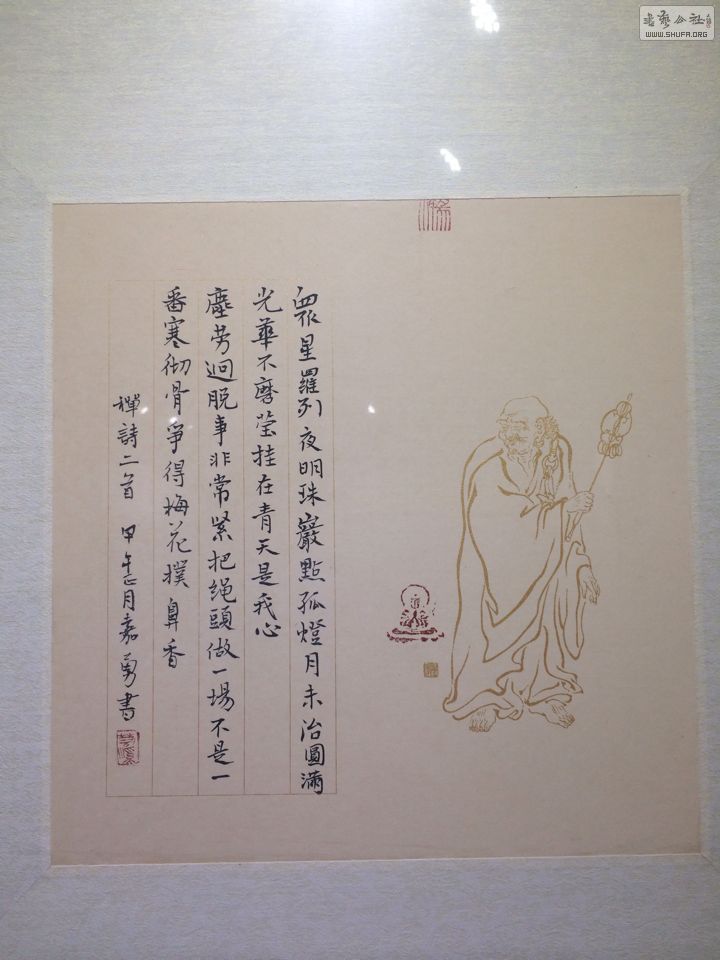 眾星羅列夜明珠巖點孤燈月未治圓滿
光華不磨莹挂在青天是我心
塵劳迥脱事非常緊把绳頭做一場不是一
番寒彻骨爭得梅花撲鼻香
禪詩二首 甲午正月嘉勇書
書藝公社
WWW.SHUFA.ORG